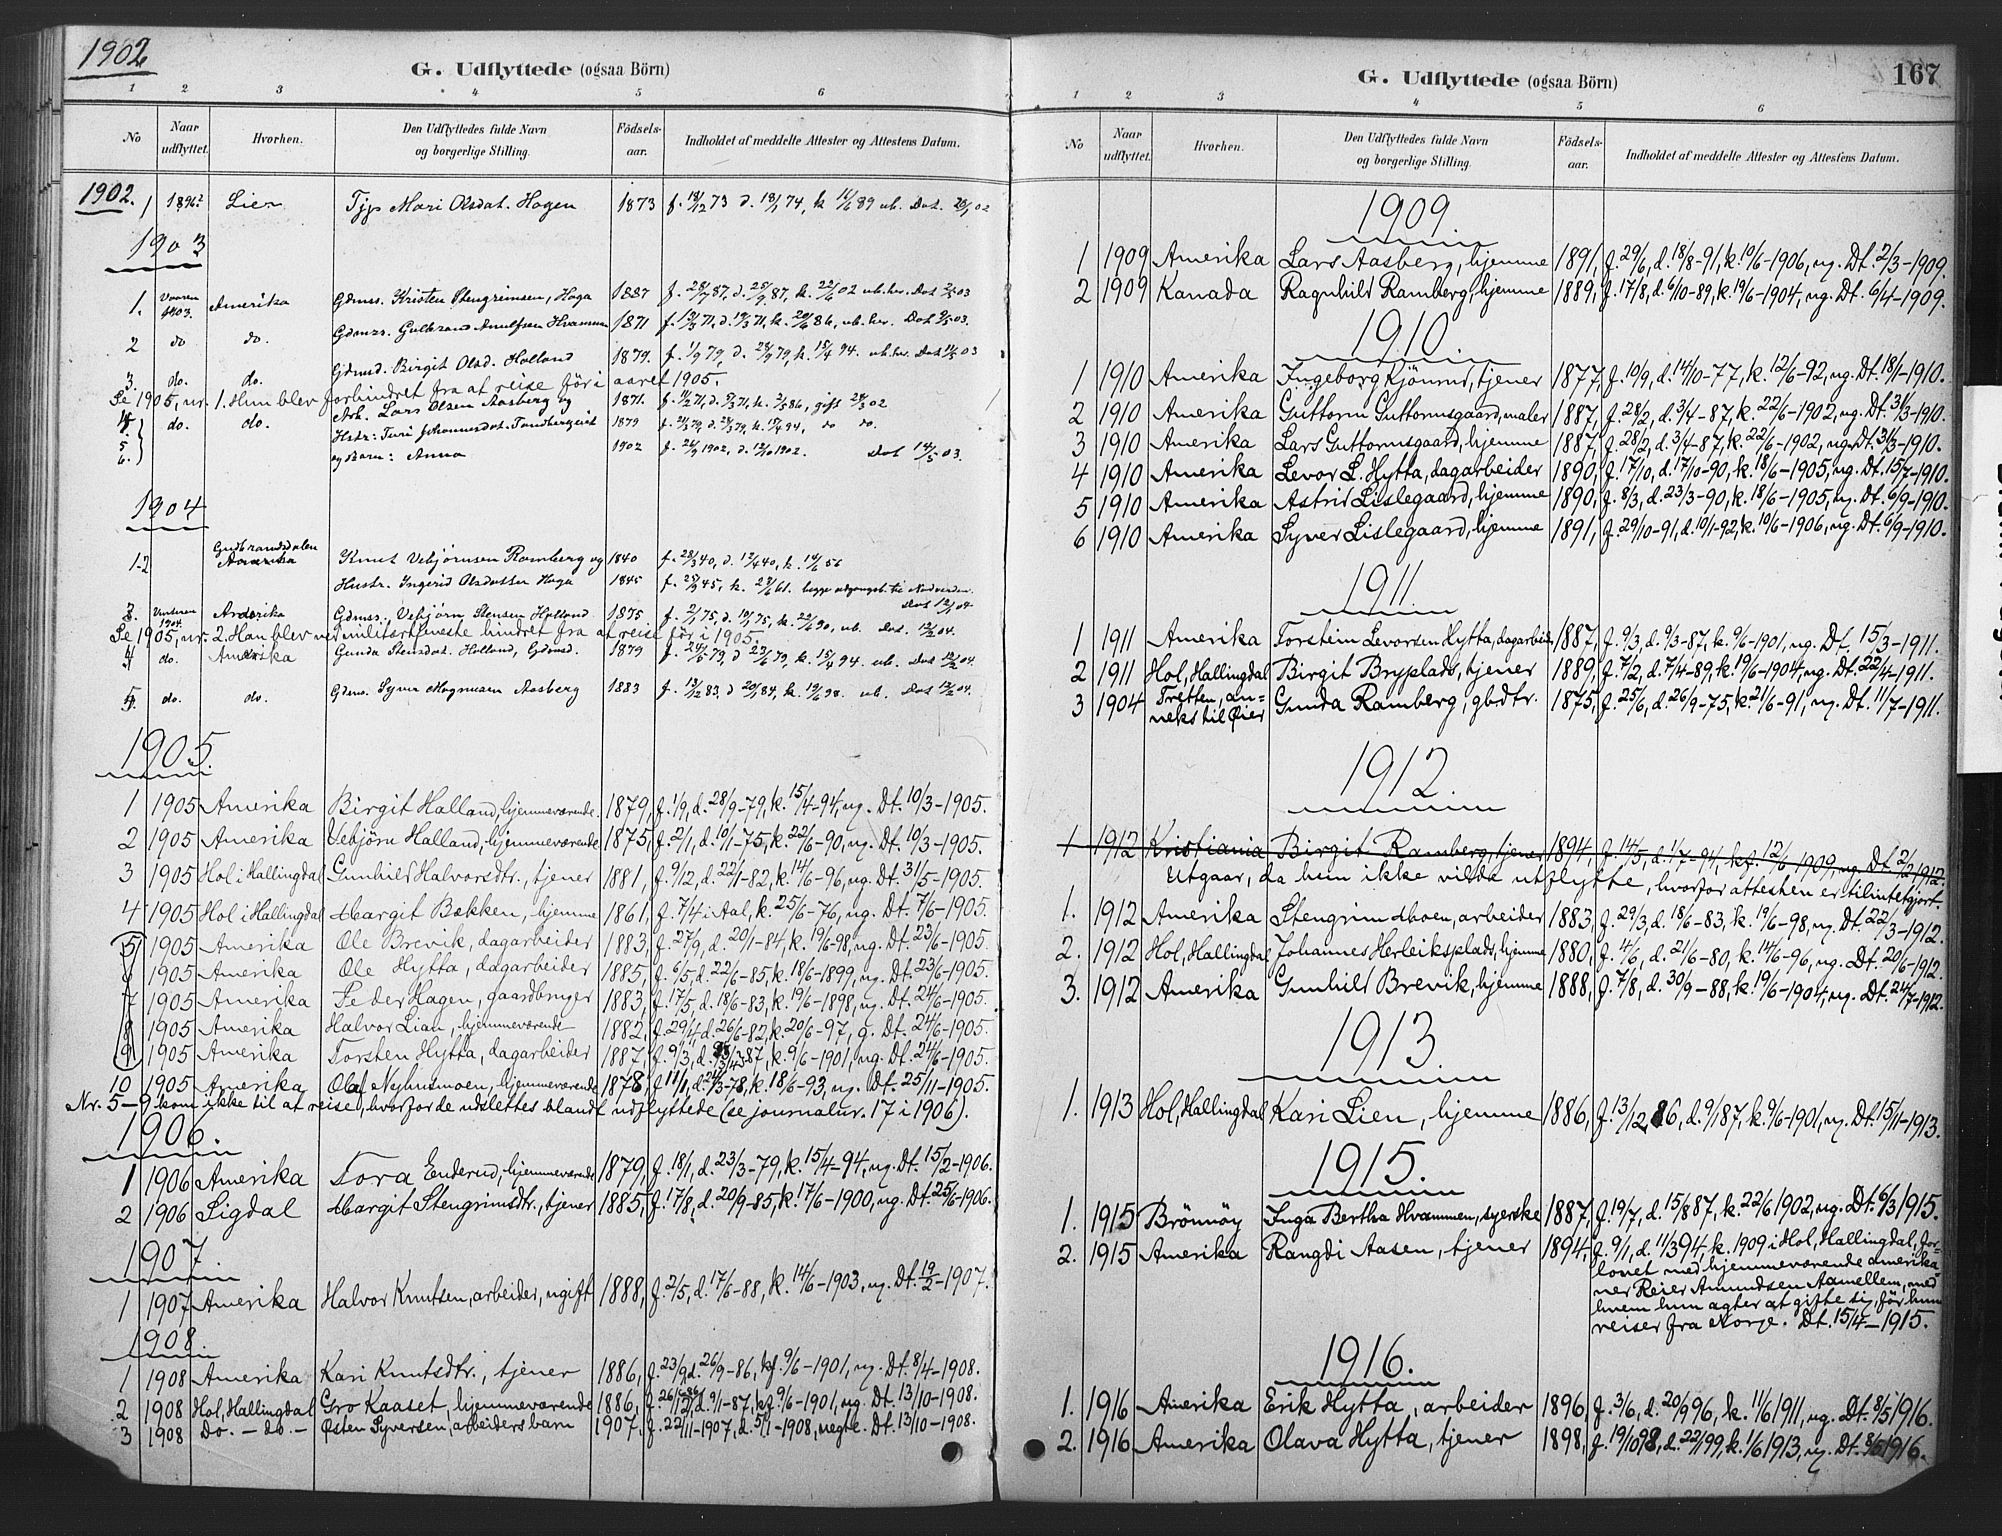 1902
G. Udflyttede (ogsaa Börn)
1 2 3 4 5 6
No Naar udflyttet. Hvorhen. Den Udflyttedes fulde Navn og borgerlige Stilling. Födsels-aar. Indholdet af meddelte Attester og Attestens Datum.
1902. 1 Lier Mari Olsdat. Hagen 1873
1903
1. Vaaren 1903. Amerika Gdmss. Kristen Stengrimsen, Haga 1887
2 do do. Gdmss. Gulbrand Arnulfsen Hvammen 1871
3. do. do. Gdmsd. Birgit Olsd. Halland 1879.
Se 1905, nr. 1. Hun blev forhindret fra at reise før i aaret 1905.
4. do. do. Arb. Lars Olsen Aasberg og 1871.
5 Hstr: Turi Johannesdat. 1879
6. og Barn: Anna 1902
1904
1-2 Gudbrandsdalen Knut Vebjørnsen Ramberg og 1840
Hustr. Ingerid Olsdatter Haga 1845
3. Vinteren 1904. Amerika Gdmss. Vebjørn Stensen Halland 1875
Se 1905, nr. 2. Han blev ved militærtjeneste hindret fra at reise før i 1905.
4 do. Amerika Gunda Stensdat. Halland, Gdmsd. 1879
5 do. do. Gdms. Syver Mogensen Aasberg 1883
1905.
1 1905 Amerika Birgit Halland, hjemmeværende 1879, f. 1/9, d. 28/9-79, k. 15/4-94, ug. Dt. 10/3-1905.
2 1905 Amerika Vebjörn Halland, hjemmeværende 1875, f. 2/1, d. 10/1-75, k. 22/6-90, ug. Dt. 10/3-1905.
3 1905 Hol i Hallingdal Gunhild Halvorsdtr., tjener 1881, f. 9/12, d. 22/1-82, k. 14/6-96, ug. Dt. 31/5-1905.
4 1905 Hol i Hallingdal Margit Bækken, hjemme 1861, f. 7/4 i Aal, k. 25/6-76, ug. Dt. 7/6-1905.
5 1905 Amerika Ole Brevik, dagarbeider 1883, f. 27/9, d. 20/1-84, k. 19/6-98, ug. Dt. 23/6-1905.
6 1905 Amerika Ole Hytta, dagarbeider 1885, f. 6/5, d. 22/6-85, k. 18/6-1899, ug. Dt. 23/6-1905.
7 1905 Amerika Peder Hagen, gaardbruger 1883, f. 17/5, d. 18/6-83, k. 19/6-1898, ug. Dt. 24/6-1905.
8 1905 Amerika Halvor Lian, hjemmeværende 1882, f. 29/4, d. 26/6-82, k. 20/6-97, g. Dt. 24/6-1905.
9 1905 Amerika Torsten Hytta, dagarbeider 1887, f. 9/3, k. 9/6-1901, ug. Dt. 24/6-1905.
10 1905 Amerika Olaf Nyhusmoen, hjemmeværende 1878, f. 11/1, d. 24/3-78, k. 18/6-93, ug. Dt. 25/11-1905.
Nr. 5-9 kom ikke til at reise, hvorfor de udslettes blandt udflyttede (se journalnr. 17 i 1906).
1906.
1 1906 Amerika Tora Enderud, hjemmeværende 1879, f. 18/1, d. 23/3-79, k. 15/4-94, ug. Dt. 15/2-1906.
2 1906 Sigdal Margit Stengrimsdtr., tjener 1885, f. 17/8, d. 20/9-85, k. 17/6-1900, ug. Dt. 25/6-1906.
1907.
1 1907 Amerika Halvor Knutsen, arbeider, ugift 1888, f. 2/5, d. 17/6-88, k. 14/6-1903, ug. Dt. 19/2-1907.
1908.
1 1908 Amerika Kari Knutsdtr., tjener 1886, f. 23/9 d. 26/9-86, kf. 9/6-1901, ug. Dt. 8/4-1908.
2 1908 Hol, Hallingdal Gro Kaaset, hjemmeværende 1886, d. 9/1-87, kf. 9/6-1901, ug. Dt. 13/10-1908.
3 1908 Do. - do. - Østen Syversen, arbeiders barn 1907, f. 22/11-1907, d. 5/1-1908, uegte. Dt. 13/10-1908.
G. Udflyttede (ogsaa Börn) 167
1 2 3 4 5 6
No Naar udflyttet. Hvorhen. Den Udflyttedes fulde Navn og borgerlige Stilling. Födsels-aar. Indholdet af meddelte Attester og Attestens Datum.
1909.
1 1909 Amerika Lars Aasberg, hjemme 1891, f. 29/6, d. 18/8-91, k. 10/6-1906, ug. Dt. 2/3-1909.
2 1909 Kanada Ragnhild Ramberg, hjemme 1889, f. 17/8, d. 6/10-89, k. 19/6-1904, ug. Dt. 6/4-1909.
1910.
1 1910 Amerika Ingeborg Kjönnrud, tjener 1877, f. 10/9, d. 14/10-77, k. 12/6-92, ug. Dt. 18/1-1910.
2 1910 Amerika Guttorm Guttormsgaard, maler 1887, f. 28/2, d. 3/4-87, k. 22/6-1902, ug. Dt. 31/3-1910.
3 1910 Amerika Lars Guttormsgaard, hjemme 1887, f. 28/2, d. 3/4-87, k. 22/6-1902, ug. Dt. 31/3-1910.
4 1910 Amerika Levor L. Hytta, dagarbeider 1890, f. 17/10, d. 17/10-90, k. 18/6-1905, ug. Dt. 15/7-1910.
5 1910 Amerika Astrid Lislegaard, hjemme 1890, f. 8/3, d. 23/3-90, k. 18/6-1905, ug. Dt. 6/9-1910.
6 1910 Amerika Syver Lislegaard, hjemme 1891, f. 29/10-91, d. 10/1-92, k. 10/6-1906, ug. Dt. 6/9-1910.
1911.
1 1911 Amerika Torstein Levorsen Hytta, dagarbeid. 1887, f. 9/3, d. 9/3-87, k. 9/6-1901, ug. Dt. 15/3-1911.
2 1911 Hol, Hallingdal Birgit Bryplads, tjener 1889, f. 7/2, d. 7/4-89, k. 19/6-1904, ug. Dt. 22/4-1911.
3 1904 Tretten, anneks til Øier Gunda Ramberg, gbdtr. 1875, f. 25/6, d. 26/9-75, k. 21/6-91, ug. Dt. 11/7-1911.
1912.
1 1912 Kristiania Birgit Ramberg, tjener 1894, f. 14/5, d. 1/7-94, kf. 12/6-1909, ug. Dt. 2/2-1912.
Utgaar, da hun ikke vilde utflytte, hvorfor attesten er tilintetgjort.
1. 1912 Amerika Stengrim Moen, arbeider 1883, f. 29/3, d. 18/6-83, k. 19/6-98, ug. Dt. 22/3-1912.
2. 1912 Hol, Hallingdal Johannes Herleiksplads, hjemme 1880, f. 4/6, d. 21/6-80, k. 14/6-96, ug. Dt. 20/6-1912.
3. 1912 Amerika Gunhild Brevik, hjemme 1888, f. 7/8, d. 30/9-88, k. 19/6-1904, ug. Dt. 24/7-1912.
1913.
1. 1913 Hol, Hallingdal Kari Lien, hjemme 1886, f. 13/12 86, d. 9/1 87, k. 9/6-1901, ug. Dt. 15/11-1913.
1915.
1. 1915 Brönnöy Inga Bertha Hvammen, syerske 1887, f. 19/7, d. 15/8 87, k. 22/6 1902, ug. Dt. 6/3 1915.
2. 1915 Amerika Rangdi Aasen, tjener 1894, f. 9/1, d. 11/3 94, k. 1909 i Hol, Hallingdal, for-
lovet med hjemmeværende amerika-
ner Reier Amundsen Aamellem, med
hvem hun agter at gifte sig, før hun
reiser fra Norge. Dt. 15/4-1915.
1916.
1. 1916 Amerika Erik Hytta, arbeider 1896, f. 3/6, d. 20/9 96, k. 11/6 1911, ug. Dt. 8/5 1916.
2. 1916 Amerika Olava Hytta, tjener 1898, f. 19/10 98, d. 22/1 99, k. 1/6 1913, ug. Dt. 8/5 1916.